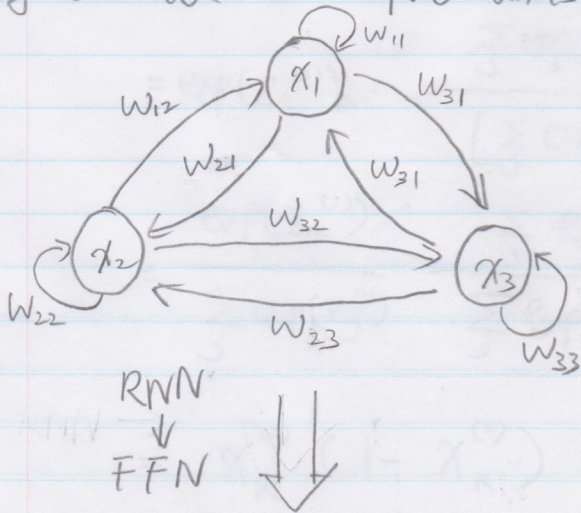 W11
X1
W12
W31
W21
W31
W32
X2
X3
W22
W23
W33
RNN
FFN